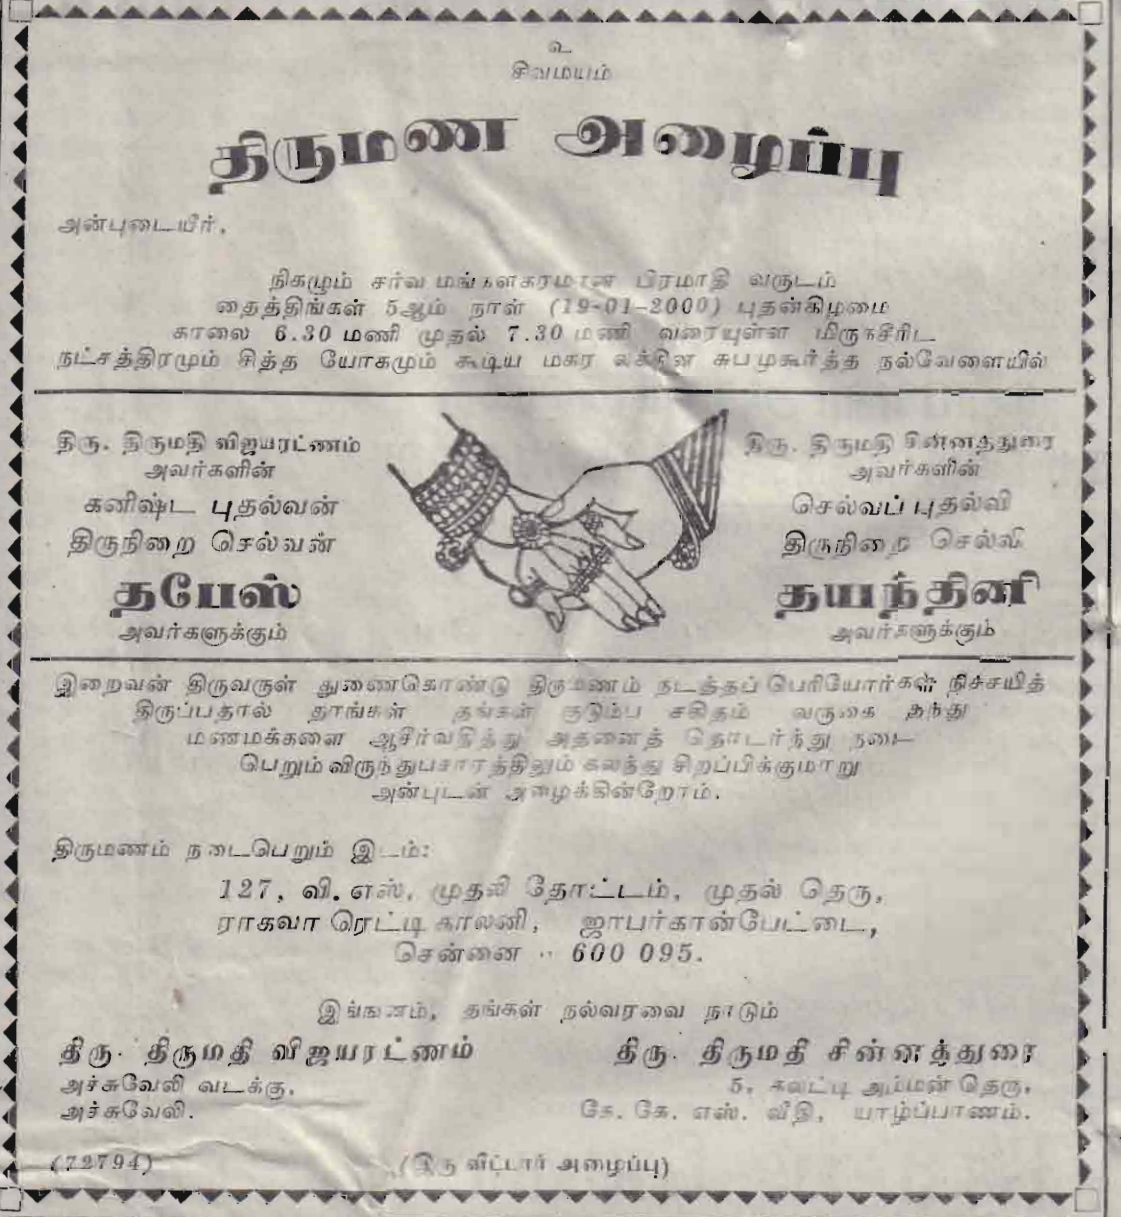 உ
சிவமயம்
திருமண அழைப்பு
அன்புடையீர்,
நிகழும் சர்வ மங்களகரமான பிரமாதி வருடம்
தைத்திங்கள் 5ஆம் நாள் (19-01-2000) புதன்கிழமை
காலை 6.30 மணி முதல் 7.30 மணி வரையுள்ள மிருகசீரிட
நட்சத்திரமும் சித்த யோகமும் கூடிய மகர லக்கின சுபமுகூர்த்த நல்வேளையில்
திரு. திருமதி விஜயரட்ணம்
அவர்களின்
கனிஷ்ட புதல்வன்
திருநிறை செல்வன்
தபேஸ்
அவர்களுக்கும்
திரு. திருமதி சின்னத்துரை
அவர்களின்
செல்வப் புதல்வி
திருநிறை செல்வி
தயந்தினி
அவர்களுக்கும்
இறைவன் திருவருள் துணைகொண்டு திருமணம் நடத்தப் பெரியோர்கள் நிச்சயித்
திருப்பதால் தாங்கள் தங்கள் குடும்ப சகிதம் வருகை தந்து
மணமக்களை ஆசிர்வதித்து அதனைத் தொடர்ந்து நடை
பெறும் விருந்துபசாரத்திலும் கலந்து சிறப்பிக்குமாறு
அன்புடன் அழைக்கின்றோம்.
திருமணம் நடைபெறும் இடம்:
127, வி. எஸ். முதலி தோட்டம், முதல் தெரு,
ராகவா ரெட்டி காலனி, ஜாபர்கான்பேட்டை,
சென்னை - 600 095.
இங்ஙனம், தங்கள் நல்வரவை நாடும்
திரு. திருமதி விஜயரட்ணம்
அச்சுவேலி வடக்கு,
அச்சுவேலி.
திரு. திருமதி சின்னத்துரை
5, கலட்டி அம்மன் தெரு,
கே. கே. எஸ். வீதி, யாழ்ப்பாணம்.
(72794)
(இரு வீட்டார் அழைப்பு)